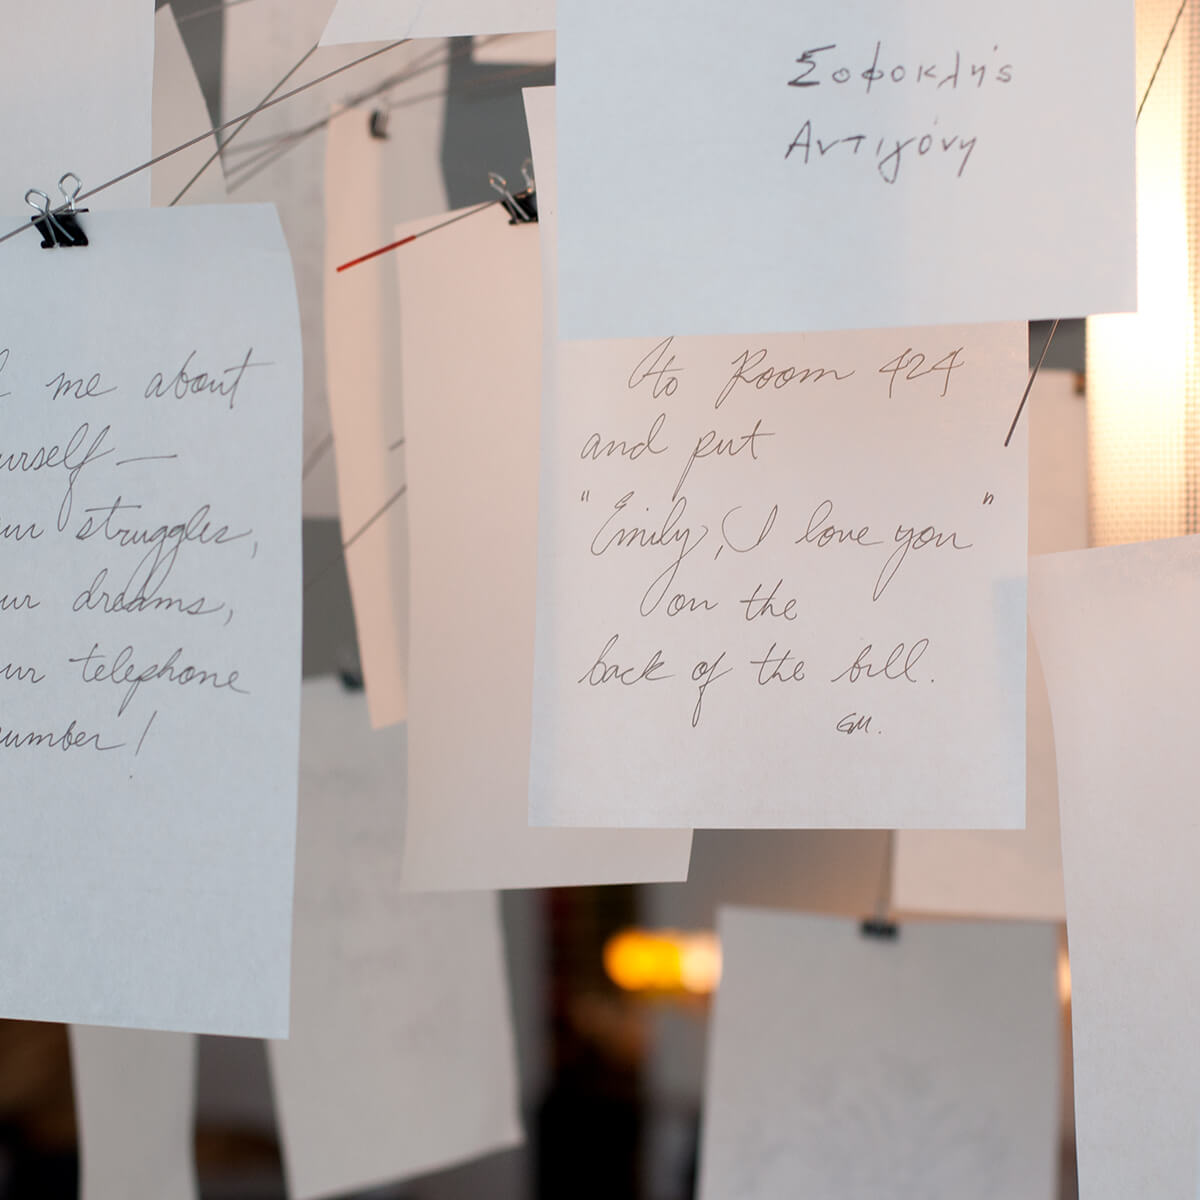 me about
urself —
ur struggles,
ur dreams,
ur telephone
umber!
Σοφοκλής
Αντιγόνη
to Room 424
and put
"Emily, I love you"
on the
back of the bill.
GM.